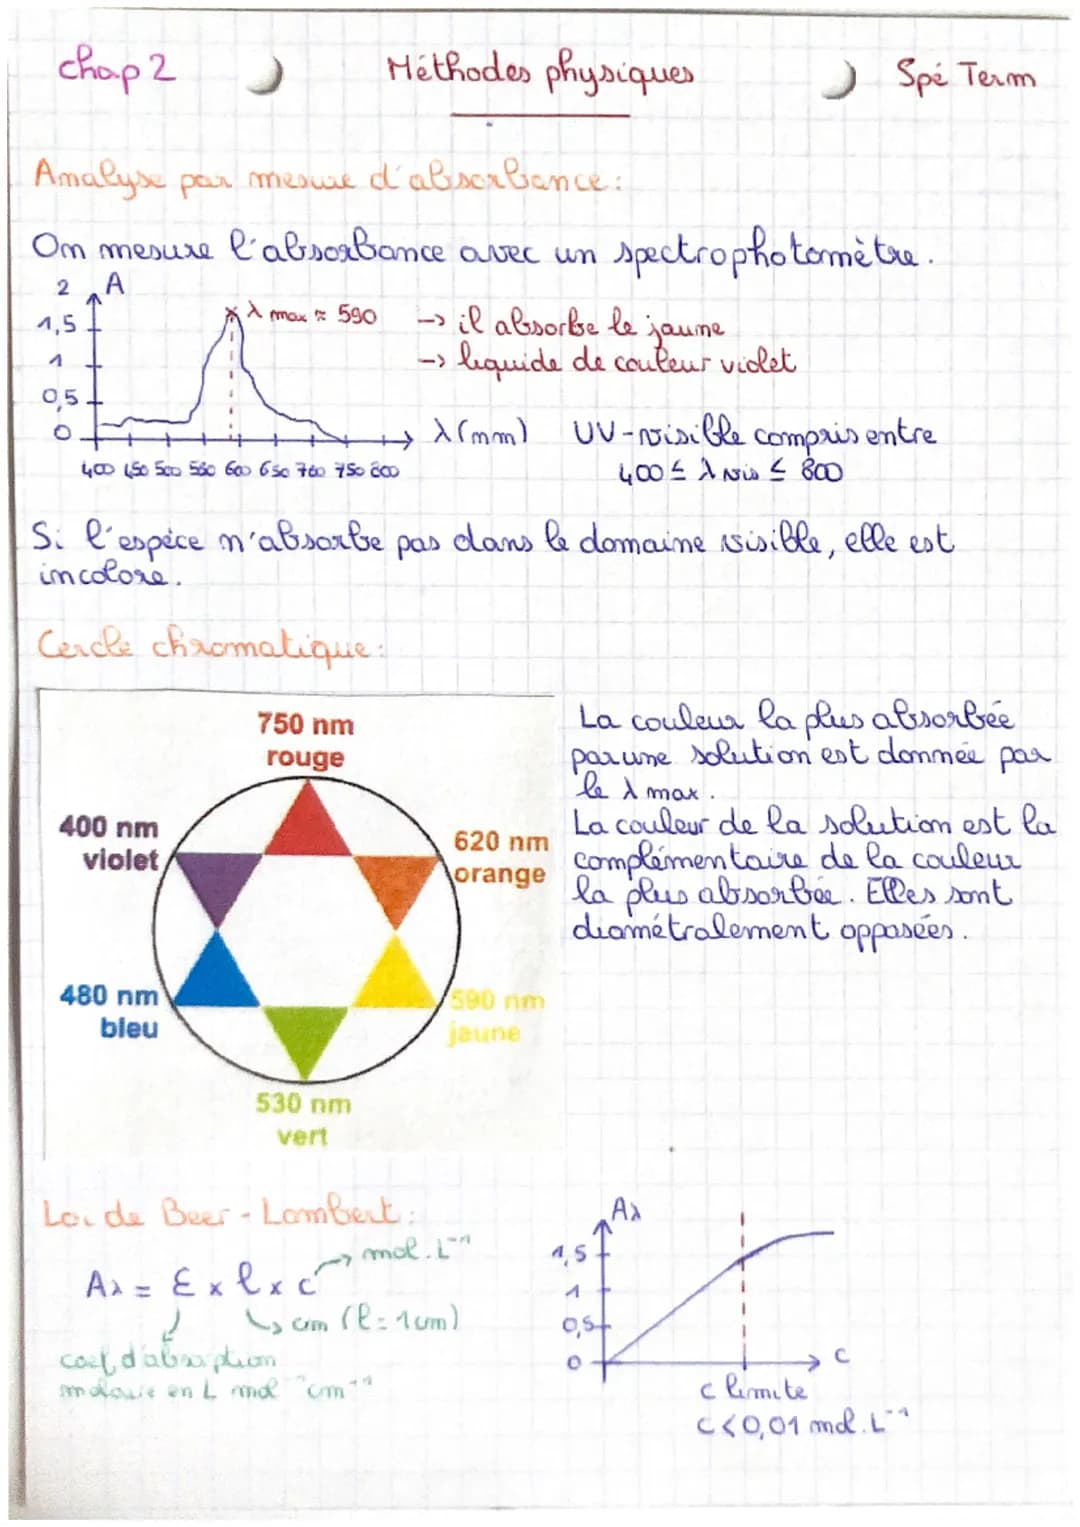 chap 2
Méthodes physiques
Spé Term
Analyse par mesure d'absorbance :
On mesure l'absorbance avec un spectrophotomètre.
2 A
1,5
1
0,5
0
λ max ≈ 590
-> il absorbe le jaune
-> liquide de couleur violet
λ(nm)
400 450 500 550 600 650 700 750 800
UV-visible compris entre
400 ≤ λ vis ≤ 800
Si l'espèce n'absorbe pas dans le domaine visible, elle est
incolore.
Cercle chromatique :
750 nm
rouge
400 nm
violet
620 nm
orange
480 nm
bleu
590 nm
jaune
530 nm
vert
La couleur la plus absorbée
par une solution est donnée par
le λ max.
La couleur de la solution est la
complémentaire de la couleur
la plus absorbée. Elles sont
diamétralement opposées.
Loi de Beer-Lambert :
Aλ = ε x l x c
-> mol.L⁻¹
-> cm (l = 1cm)
coef d'absorption
molaire en L mol⁻¹ cm⁻¹
Aλ
1,5
1
0,5
0
c
c limite
c < 0,01 mol.L⁻¹